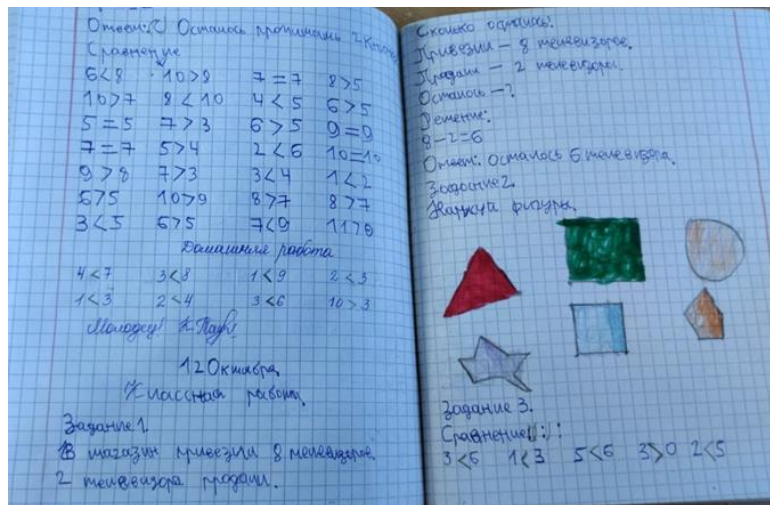 Ответ: Осталось прочитать 2 книги
Сравнение
6<8 10>9 7=7 8>5
10>7 8<10 4<5 6>5
5=5 7>3 6>5 9=9
7=7 5>4 2<6 10=10
9>8 7>3 3<4 1<2
6>5 10>9 8>7 8>7
3<5 6>5 7<9 11>0
Домашняя работа
4<7 3<8 1<9 2<3
1<3 2<4 3<6 10>3
Молодец!
12 Октября
Классная работа
Задание 1.
В магазин привезли 8 телевизоров.
2 телевизора продали.
Сколько осталось?
Привезли – 8 телевизоров.
Продали – 2 телевизоры.
Осталось – ?
Решение:
8-2=6
Ответ: осталось 6 телевизора.
Задание 2.
Нарисуй фигуры.
Задание 3.
Сравнение
3<6 1<3 5<6 3>0 2<5